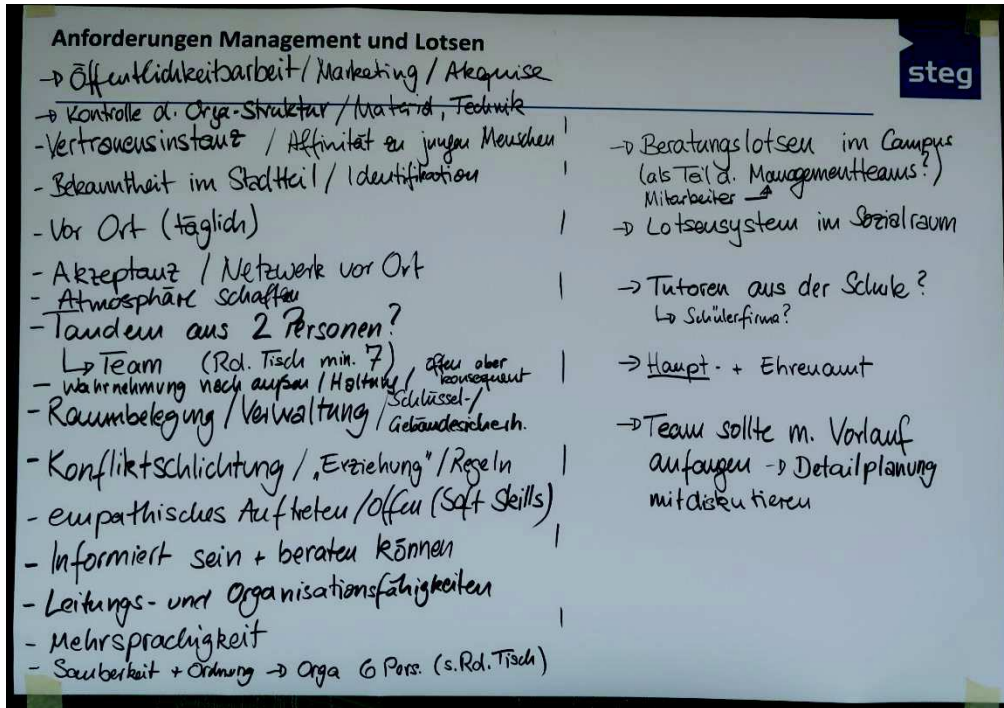 Anforderungen Management und Lotsen
steg
→ Öffentlichkeitsarbeit / Marketing / Akquise
→ Kontrolle d. Orga-Struktur / Material, Technik
- Vertrauensinstanz / Affinität zu jungen Menschen
- Bekanntheit im Stadtteil / Identifikation
- Vor Ort (täglich)
- Akzeptanz / Netzwerk vor Ort
- Atmosphäre schaffen
- Tandem aus 2 Personen?
↳ Team (Rd. Tisch min. 7)
- Wahrnehmung nach außen / Haltung / offen aber konsequent
- Raumbelegung / Verwaltung / Schlüssel-/
Gebäudesicherh.
- Konfliktschlichtung / „Erziehung“ / Regeln
- empathisches Auftreten / Offen (Soft Skills)
- Informiert sein + beraten können
- Leitungs- und Organisationsfähigkeiten
- Mehrsprachigkeit
- Sauberkeit + Ordnung → Orga 6 Pers. (s. Rd. Tisch)
→ Beratungslotsen im Campus
(als Teil d. Managementteams?)
Mitarbeiter
→ Lotsensystem im Sozialraum
→ Tutoren aus der Schule?
↳ Schülerfirma?
→ Haupt- + Ehrenamt
→ Team sollte m. Vorlauf
anfangen → Detailplanung
mitdiskutieren